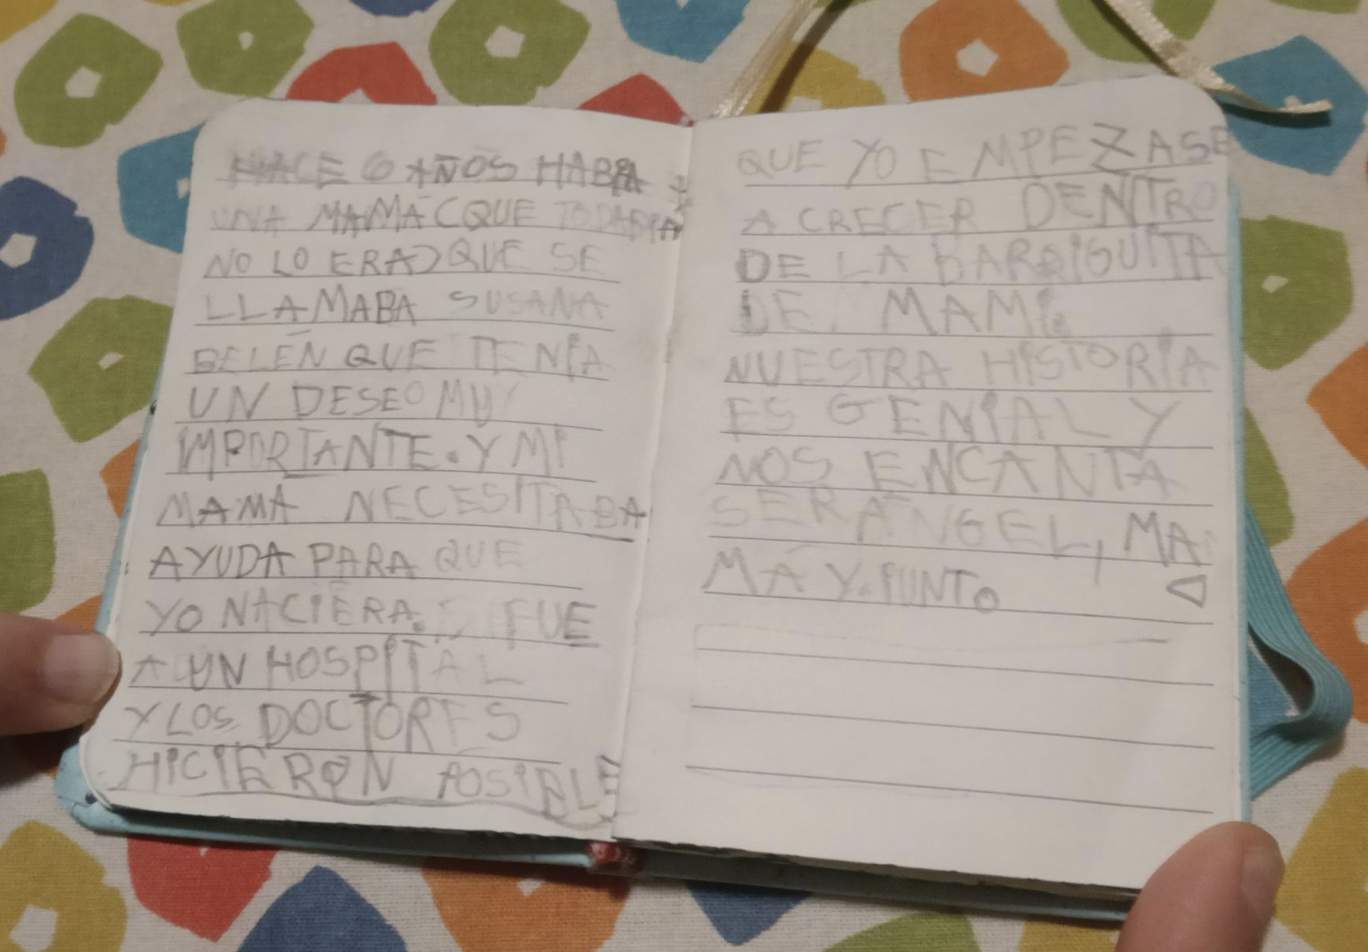 HACE 6 AÑOS HABIA
UNA MAMÁ (QUE TODABIA
NO LO ERA) QUE SE
LLAMABA SUSANA
BELÉN QUE TENÍA
UN DESEO MUY
IMPORTANTE. Y MI
MAMÁ NECESITABA
AYUDA PARA QUE
YO NACIERA. FUE
A UN HOSPITAL
Y LOS DOCTORES
HICIERON POSIBLE
QUE YO EMPEZASE
A CRECER DENTRO
DE LA BARRIGUITA
DE MAMI.
NUESTRA HISTORIA
ES GENIAL Y
NOS ENCANTA
SER ÁNGEL, MA
MÁ Y PUNTO